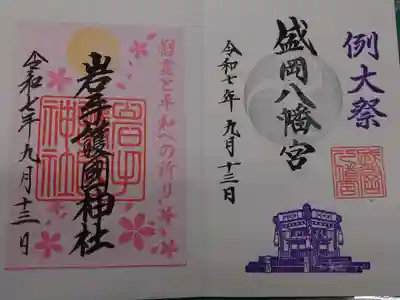 例大祭
盛岡八幡宮
令和七年九月十三日
慰霊と平和への祈り
岩手護國神社
岩手護國神社
令和七年九月十三日